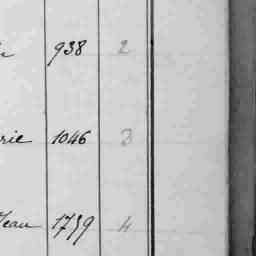 938 2
rie 1046 3
Jean 1759 4